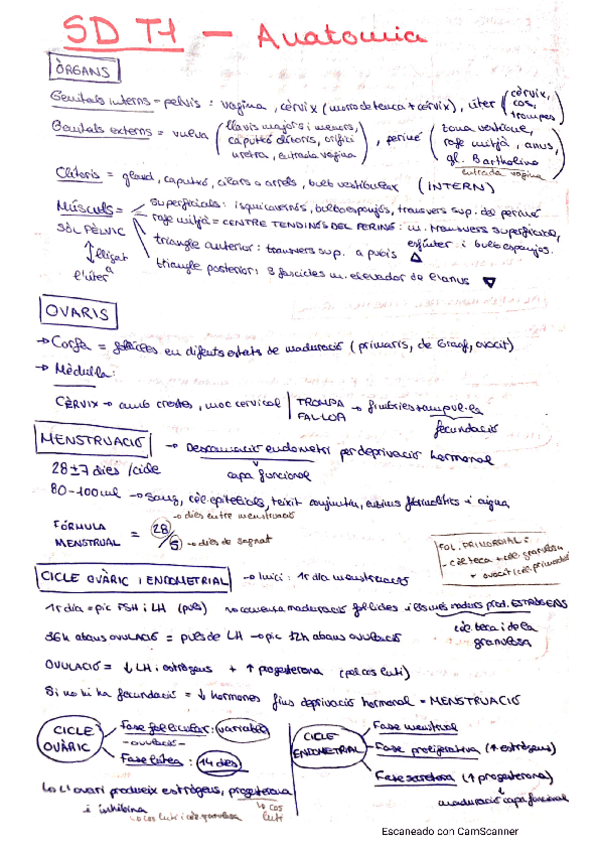 SD T1 – Anatomia
ÒRGANS
Genitals interns = pelvis : vagina, cèrvix (morro de tenca + cèrvix), úter (cèrvix, cos, trompes)
Genitals externs = vulva (llavis majors i menors, caputxó clítoris, orifici uretra, entrada vagina), periné (zona vestibular, rafe mitjà, anus, gl. Bartholino
entrada vagina
Clítoris = gland, caputxó, cilars o arrels, bulb vestibular (INTERN)
Músculs = superficials: isquicavernós, bulboesponjós, transvers sup. do periné
SÒL PÈLVIC
rafe mitjà = CENTRE TENDINÓS DEL PERINÉ : m. transvers superficial, esfínter i bulboesponjos.
lligat a l'úter
triangle anterior : transvers sup. a pubis
triangle posterior : 3 fascicles m. elevador de l'anus
OVARIS
→ Corfa = fol·licles en difents estats de maduració (primaris, de Graaf, ovocit)
→ Mèdul·la :
CÈRVIX → amb crestes, moc cervical | TROMPA FAL·LOPI → fimbries + ampul·la
fecundació
MENSTRUACIÓ → Descamació endometri per deprivació hormonal
capa funcional
28±7 dies /cicle
80-100ml → sang, cèl. epitelials, teixit conjuntiu, enzims fibrinolítics i aigua
FÓRMULA MENSTRUAL = 28/5
→ dies entre menstruació
→ dies de sagnat
FOL. PRIMORDIAL =
- cèl teca + cèl. granulosa
+ ovocit
CICLE OVÀRIC i ENDOMETRIAL → Inici : 1r dia menstruació
1r dia = pic FSH i LH (puls) → comença maduració fol·licles i els més madurs prod. ESTRÒGENS
cèl. teca i de la granulosa
36h abans ovulació = puls de LH → pic 12h abans ovulació
OVULACIÓ = ↓ LH i estrògens + ↑ progesterona (pel cos luti)
Si no hi ha fecundació = ↓ hormones fins deprivació hormonal = MENSTRUACIÓ
CICLE OVÀRIC
Fase fol·licular : variable
- ovulació -
Fase lútea : 14 dies
↳ L'ovari produeix estrògens, progesterona i inhibina
↳ cos luti
↳ cos luti i cèl. granulosa
CICLE ENDOMETRIAL
Fase menstrual
Fase proliferativa (↑ estrògens)
Fase secretora (↑ progesterona)
maduració capa funcional
Escaneado con CamScanner